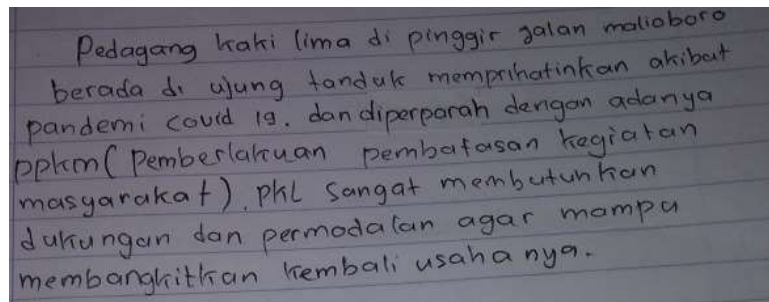 Pedagang kaki lima di pinggir jalan malioboro
berada di ujung tanduk memprihatinkan akibat
pandemi covid 19. dan diperparah dengan adanya
ppkm (Pemberlakuan pembatasan kegiatan
masyarakat). PKL sangat membutuhkan
dukungan dan permodalan agar mampu
membangkitkan kembali usahanya.